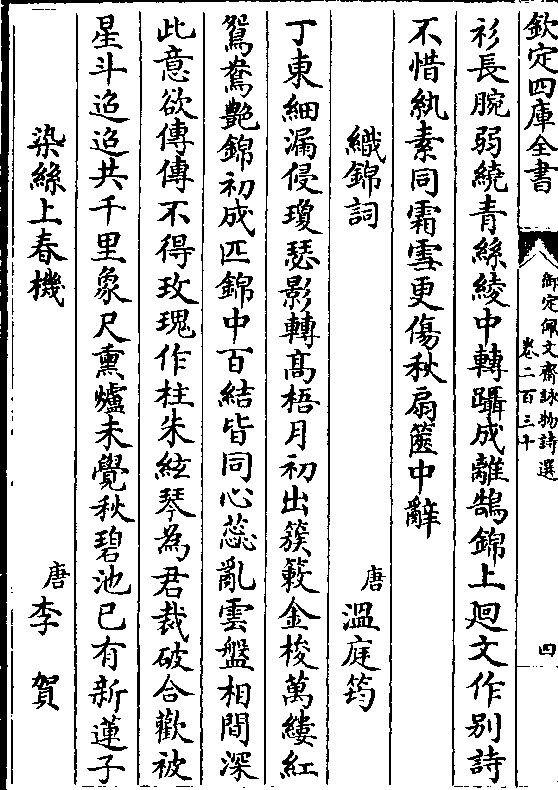 欽定四庫全書
御定佩文齋詠物詩選
卷二百三十
四
衫長腕弱繞青絲綾中轉躡成離鵠錦上廻文作別詩
不惜紈素同霜雪更傷秋扇篋中辭
織錦詞
唐溫庭筠
丁東細漏侵瓊瑟影轉高梧月初出簇簌金梭萬縷紅
鴛鴦艷錦初成匹錦中百結皆同心蕊亂雲盤相間深
此意欲傳傳不得玫瑰作柱朱絃琴為君裁破合歡被
星斗迢迢共千里象尺熏爐未覺秋碧池已有新蓮子
染絲上春機
唐李賀